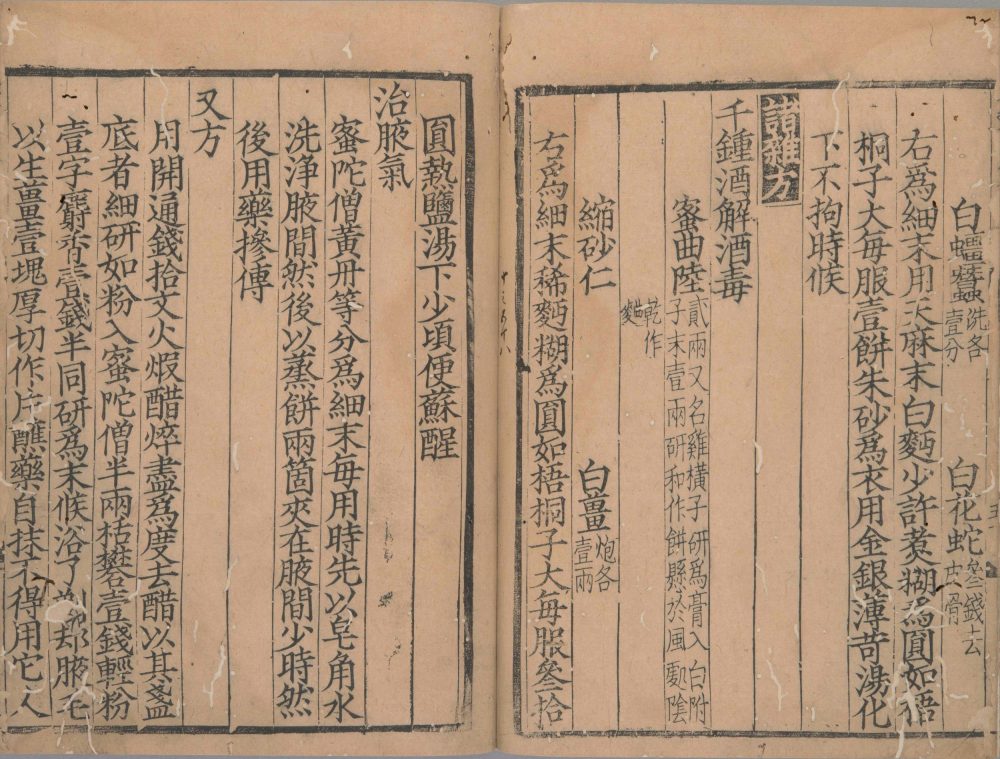 白殭蠶洗各壹分　白花蛇叄錢去皮骨
右爲細末用天麻末白麪少許煮糊爲圓如梧
桐子大每服壹餅朱砂爲衣用金銀薄荷湯化
下不拘時候
諸雜方
千鍾酒解酒毒
蜜曲陸貳兩又名雞橫子研爲膏入白附子末壹兩研和作餅懸於風處陰乾作麪
縮砂仁　白薑炮各壹兩
右爲細末稀麪糊爲圓如梧桐子大每服叄拾
圓熱鹽湯下少頃便蘇醒
治腋氣
蜜陀僧黃丹等分爲細末每用時先以皁角水
洗淨腋間然後以蒸餅兩箇夾在腋間少時然
後用藥摻傅
又方
用開通錢拾文火煆醋焠盡爲度去醋以其盞
底者細研如粉入蜜陀僧半兩枯礬壹錢輕粉
壹字麝香壹錢半同研爲末候浴了剃却腋毛
以生薑壹塊厚切作片蘸藥自抹不得用它人